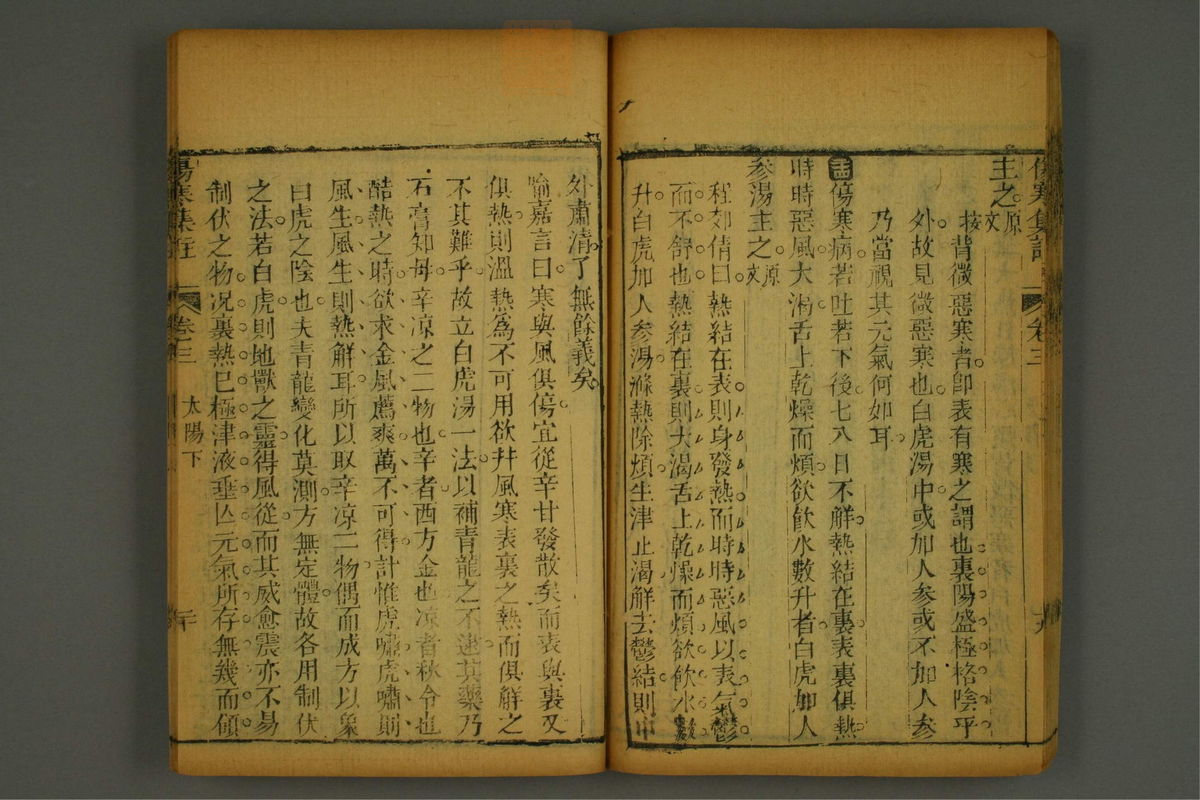 傷寒集註
卷三
十九
主之原文
按背微惡寒者卽表有寒之謂也裏陽盛極格陰乎
外故見微惡寒也白虎湯中或加人參或不加人參
乃當視其元氣何如耳
傷寒病若吐若下後七八日不解熱結在裏表裏俱熱
時時惡風大渴舌上乾燥而煩欲飮水數升者白虎加人
參湯主之原文
程郊倩曰熱結在表則身發熱而時時惡風以表氣鬱
而不舒也熱結在裏則大渴舌上乾燥而煩欲飮水數
升白虎加人參湯滌熱除煩生津止渴解去鬱結則
外肅清了無餘義矣
喻嘉言曰寒與風俱傷宜從辛甘發散矣而表與裏又
俱熱則溫熱爲不可用欲幷風寒表裏之熱而俱解之
不其難乎故立白虎湯一法以補青龍之不逮其藥乃
石膏知母辛凉之二物也辛者西方金也凉者秋令也
酷熱之時欲求金風薦爽萬不可得計惟虎嘯虎嘯則
風生風生則熱解耳所以取辛凉二物偶而成方以象
曰虎之陰也夫青龍變化莫測方無定體故各用制伏
之法若白虎則地獸之靈得風從而其威愈震亦不易
制伏之物况裏熱已極津液垂亾元氣所存無幾而領
傷寒集註
卷三
太陽下
二十